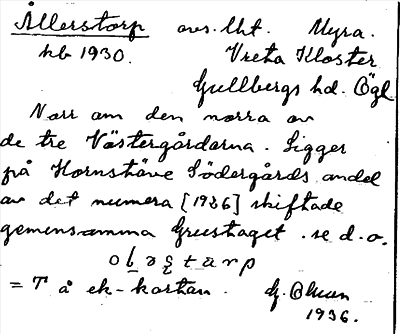 Ållerstorp avs. lht. Myra.
hb 1930. Vreta Kloster
Gullbergs hd. Ögl
Norr om den norra av
de tre Västergårdarna. Ligger
på Hornstäve Södergårds andel
av det numera [1936] skiftade
gemensamma Grustaget. se d.o.
= T å ek-kartan. G.
1936.